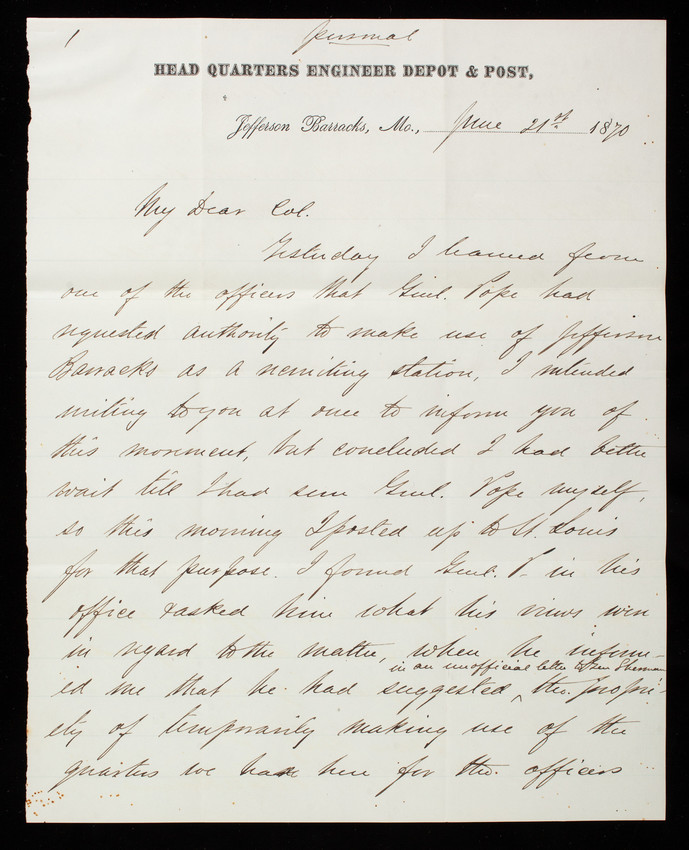 1
personal
HEAD QUARTERS ENGINEER DEPOT & POST,
Jefferson Barracks, Mo., June 21st 1870
My Dear Col.
Yesterday I learned from
one of the officers that Genl. Pope had
requested authority to make use of Jefferson
Barracks as a recruiting station, I intended
writing to you at once to inform you of
this movement, but concluded I had better
wait till I had seen Genl. Pope myself,
so this morning I posted up to St. Louis
for that purpose. I found Genl. P. in his
office & asked him what his views were
in regard to the matter, when he inform-
in an unofficial letter to Gen Sherman
ed me that he had suggested ^ the propri-
ety of temporarily making use of the
quarters we have here for the officers